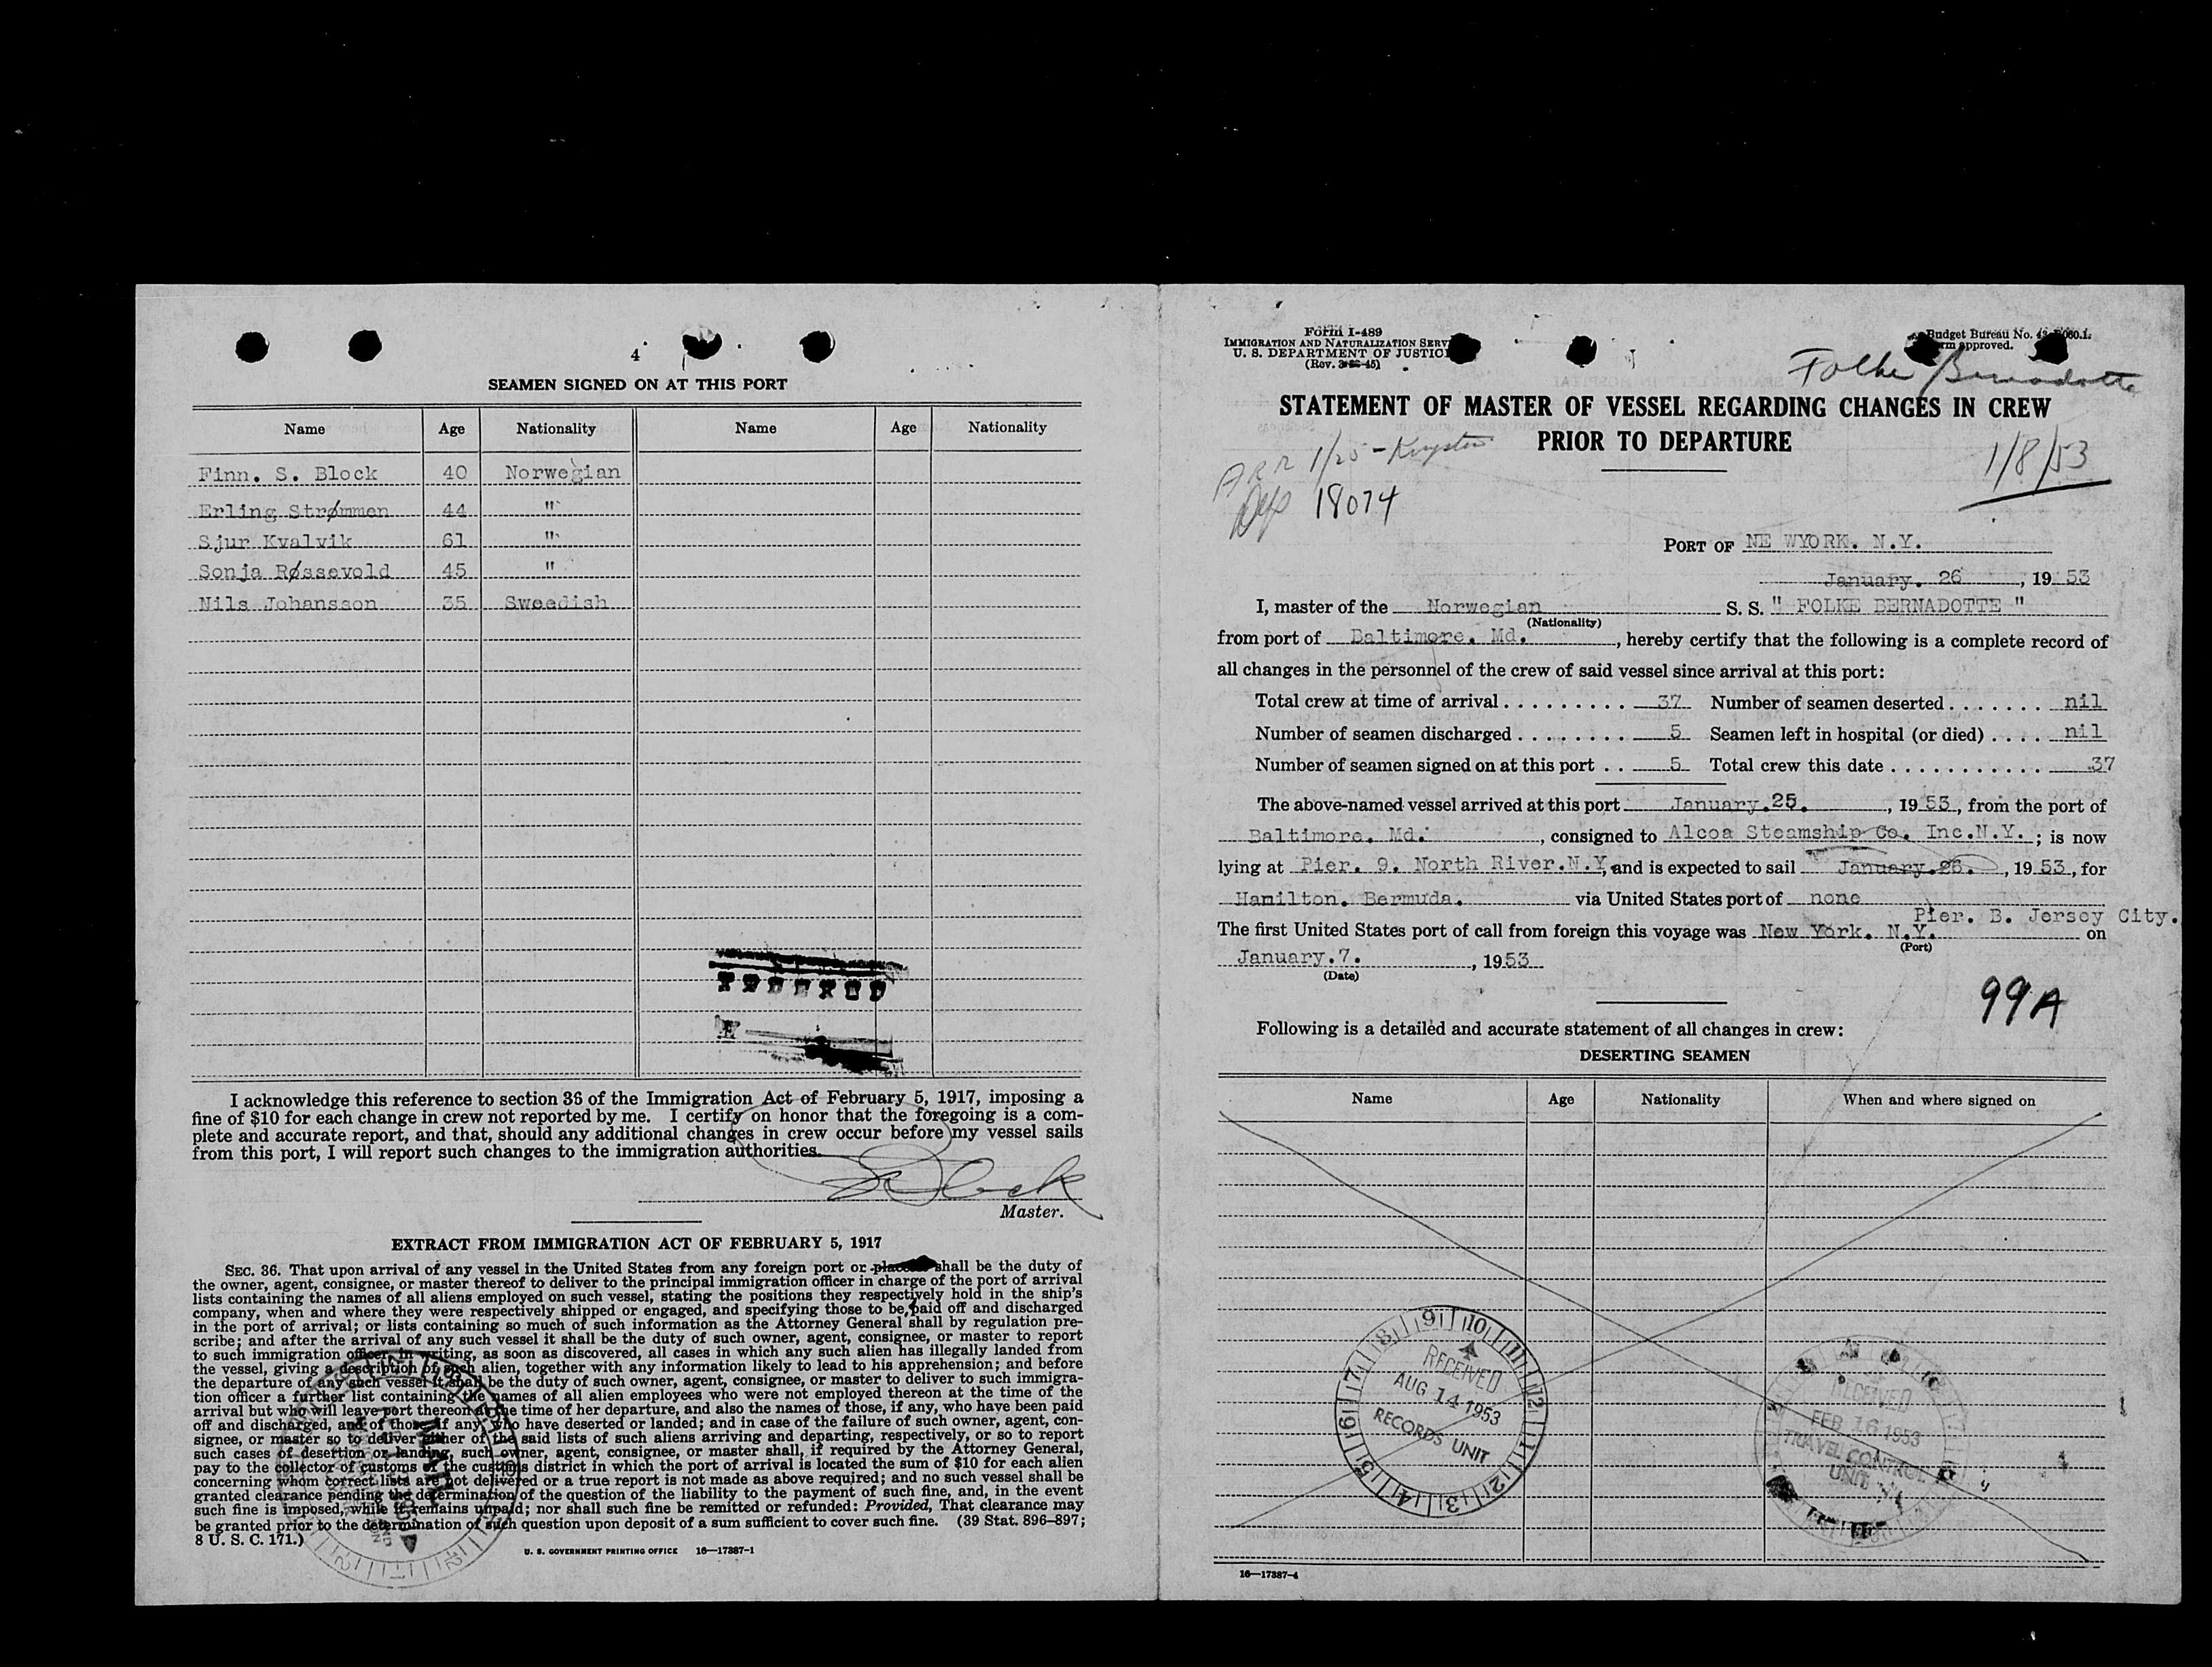 4
SEAMEN SIGNED ON AT THIS PORT
Name Age Nationality Name Age Nationality
Finn. S. Block 40 Norwegian
Erling Strømmen 44 "
Sjur Kvalvik 61 "
Sonja Røssevold 45 "
Nils Johansson 35 Sweedish
I acknowledge this reference to section 36 of the Immigration Act of February 5, 1917, imposing a
fine of $10 for each change in crew not reported by me. I certify on honor that the foregoing is a com-
plete and accurate report, and that, should any additional changes in crew occur before my vessel sails
from this port, I will report such changes to the immigration authorities.
Block
Master.
EXTRACT FROM IMMIGRATION ACT OF FEBRUARY 5, 1917
SEC. 36. That upon arrival of any vessel in the United States from any foreign port or shall be the duty of
the owner, agent, consignee, or master thereof to deliver to the principal immigration officer in charge of the port of arrival
lists containing the names of all aliens employed on such vessel, stating the positions they respectively hold in the ship's
company, when and where they were respectively shipped or engaged, and specifying those to be paid off and discharged
in the port of arrival; or lists containing so much of such information as the Attorney General shall by regulation pre-
scribe; and after the arrival of any such vessel it shall be the duty of such owner, agent, consignee, or master to report
to such immigration officer, in writing, as soon as discovered, all cases in which any such alien has illegally landed from
the vessel, giving a description of such alien, together with any information likely to lead to his apprehension; and before
the departure of any such vessel it shall be the duty of such owner, agent, consignee, or master to deliver to such immigra-
tion officer a further list containing the names of all alien employees who were not employed thereon at the time of the
arrival but who will leave port thereon at the time of her departure, and also the names of those, if any, who have been paid
off and discharged, and of those, if any, who have deserted or landed; and in case of the failure of such owner, agent, con-
signee, or master so to deliver either of the said lists of such aliens arriving and departing, respectively, or so to report
such cases of desertion or landing, such owner, agent, consignee, or master shall, if required by the Attorney General,
pay to the collector of customs of the customs district in which the port of arrival is located the sum of $10 for each alien
concerning whom correct lists are not delivered or a true report is not made as above required; and no such vessel shall be
granted clearance pending the determination of the question of the liability to the payment of such fine, and, in the event
such fine is imposed, while it remains unpaid; nor shall such fine be remitted or refunded: Provided, That clearance may
be granted prior to the determination of such question upon deposit of a sum sufficient to cover such fine. (39 Stat. 896–897;
8 U. S. C. 171.)
U. S. GOVERNMENT PRINTING OFFICE 16—17387-1
Form I-489
IMMIGRATION AND NATURALIZATION SERV
U. S. DEPARTMENT OF JUSTIC
Budget Bureau No.
approved.
Folke Bernadotte
STATEMENT OF MASTER OF VESSEL REGARDING CHANGES IN CREW
PRIOR TO DEPARTURE
1/8/53
ARR 1/25 -
Dep 18074
PORT OF NE WYORK. N.Y.
January. 26, 1953
I, master of the Norwegian S. S. " FOLKE BERNADOTTE "
(Nationality)
from port of Baltimore. Md., hereby certify that the following is a complete record of
all changes in the personnel of the crew of said vessel since arrival at this port:
Total crew at time of arrival 37 Number of seamen deserted nil
Number of seamen discharged 5 Seamen left in hospital (or died) nil
Number of seamen signed on at this port 5 Total crew this date 37
The above-named vessel arrived at this port January.25., 1953, from the port of
Baltimore. Md., consigned to Alcoa Steamship Co. Inc.N.Y.; is now
lying at Pier. 9. North River.N.Y, and is expected to sail January.26., 1953, for
Hamilton. Bermuda. via United States port of none
Pier. B. Jersey City.
The first United States port of call from foreign this voyage was New York. N.Y. on
(Port)
January.7., 1953
(Date)
99A
Following is a detailed and accurate statement of all changes in crew:
DESERTING SEAMEN
Name Age Nationality When and where signed on
RECEIVED
AUG 14 1953
RECORDS UNIT
RECEIVED
FEB 16 1953
TRAVEL CONTROL
UNIT
16—17387-4